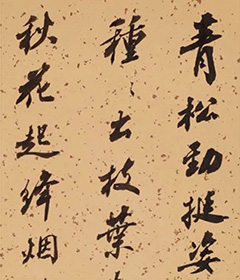 青松勁挺姿
種々出枝葉
秋花起絳烟